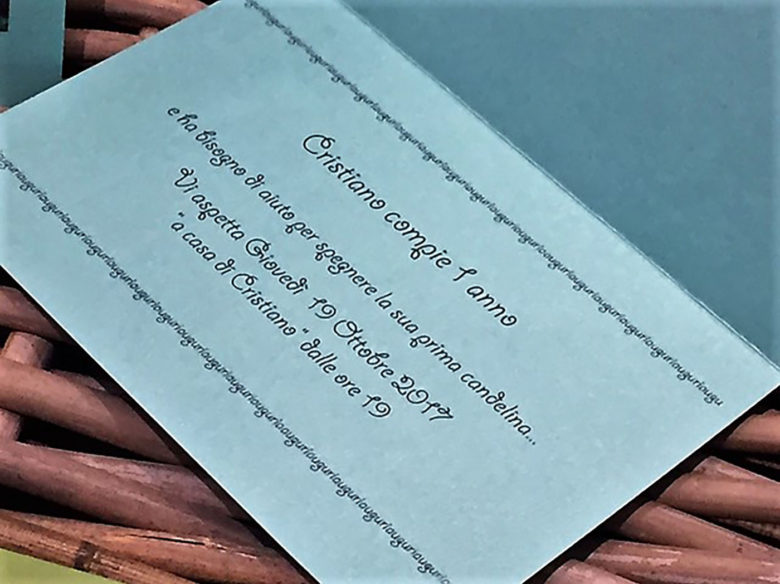 auguriauguriauguriauguriauguriauguriauguriauguriauguriauguriauguriauguriauguriaugu
Cristiano compie 1 anno
e ha bisogno di aiuto per spegnere la sua prima candelina...
Vi aspetta Giovedì 19 Ottobre 2017
"a casa di Cristiano "dalle ore 19